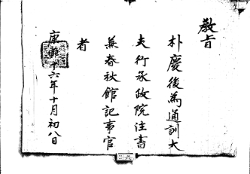 敎旨
朴慶後爲通訓大
夫行承政院注書
兼春秋館記事官
者
康熙十六年十月初八日